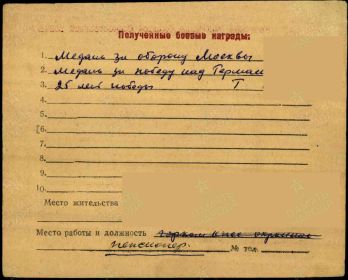 Полученные боевые награды:
1. Медаль за оборону Москвы
2. Медаль за победу над Герман
3. 25 лет победы Т
4.
5.
[6.
7.
8.
9.
10.
Место жительства
Место работы и должность
пенсионер. № тел.